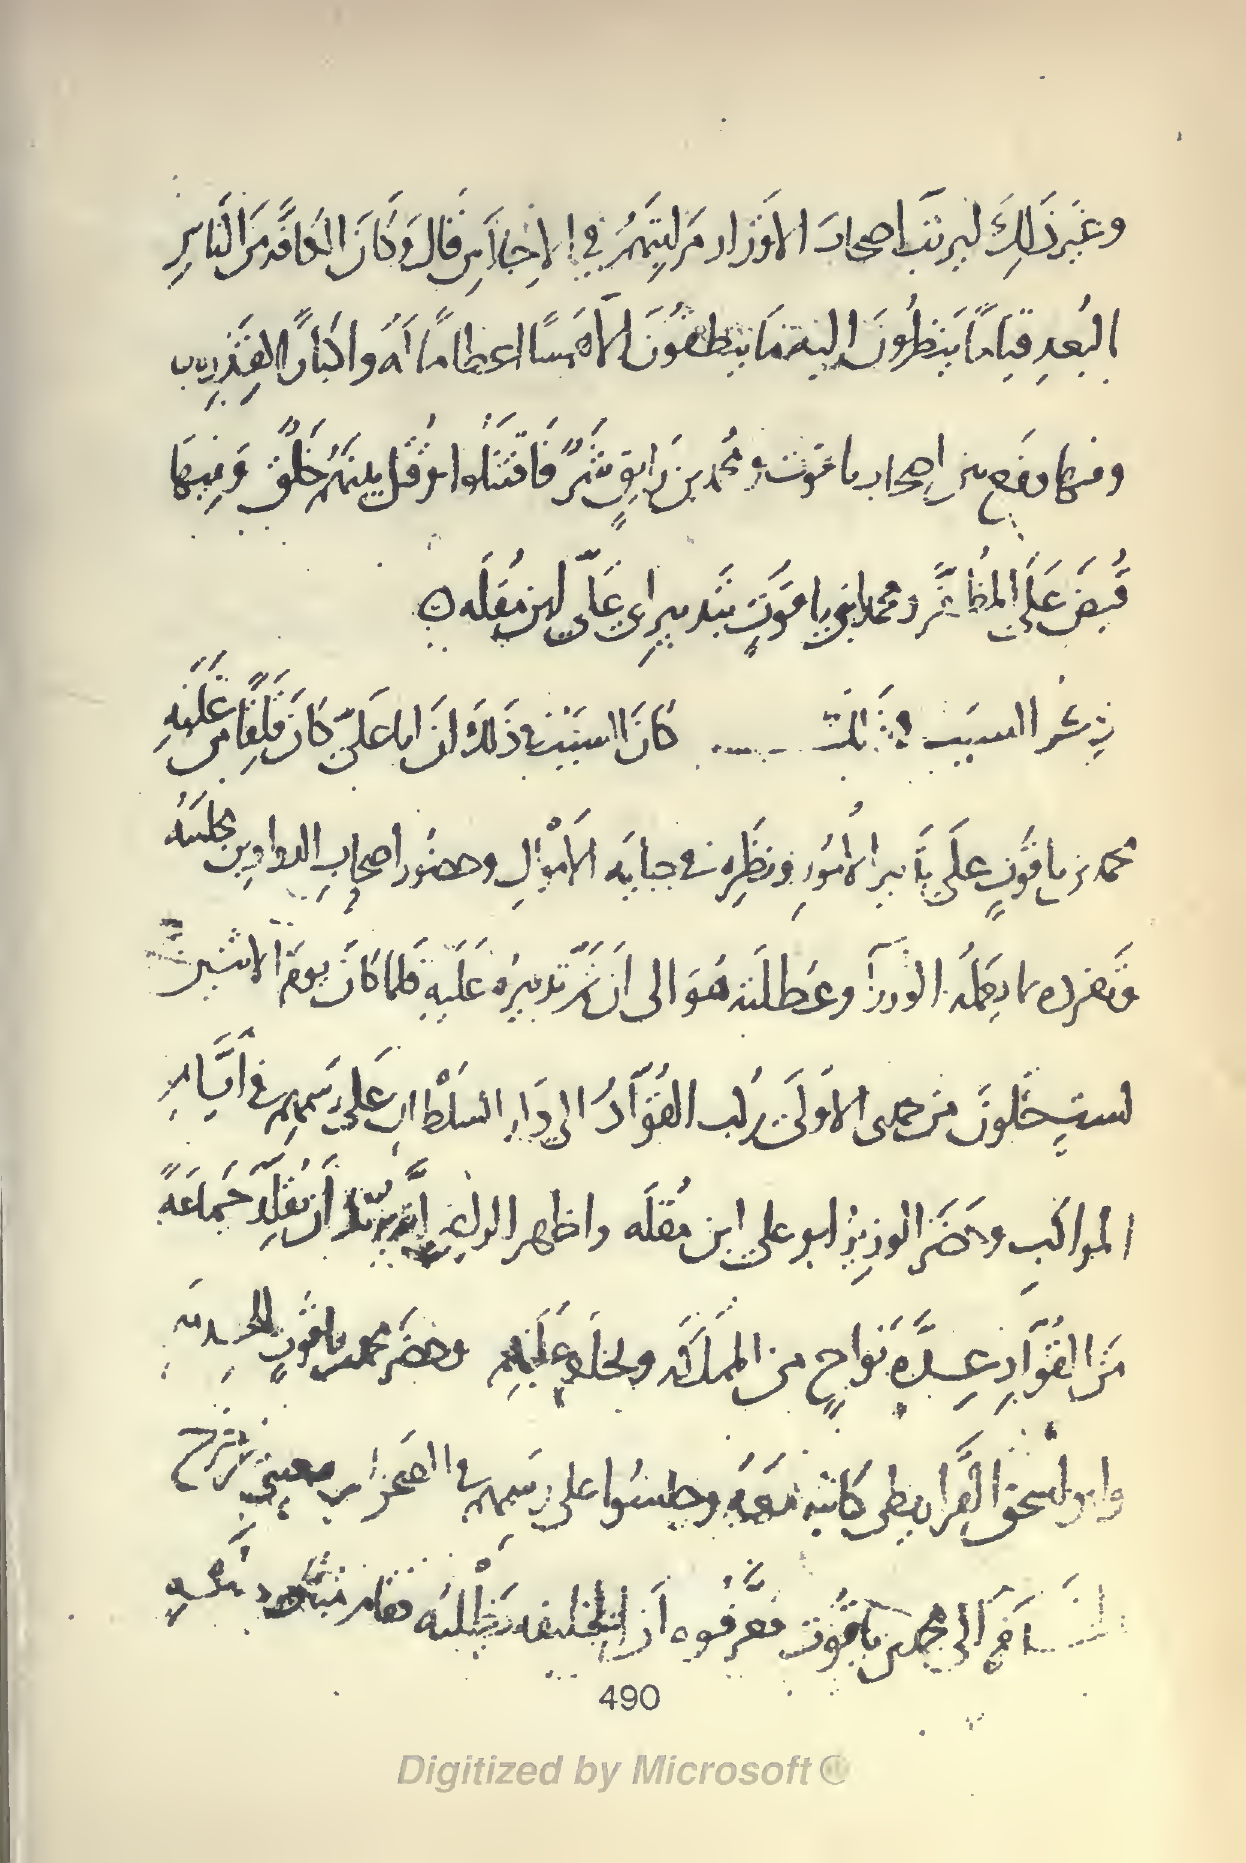 وغير ذلك ليرتب اصحاب الاوزار مراتبهم في الاجناس قال وكان الكافة من الناس
البعد قياما ينظرون اليه ما ينطقون الا همسا اعظاما له واكبارا
وفيها وقع بين اصحاب ياقوت ومحمد بن رايق شر فاقتتلوا وقتل بينهم خلق وفيها
قبض على المظفر ومحمد ابني ياقوت بتدبير ابي علي ابن مقله ه
ذكر السبب في ذلك كان السبب في ذلك ان ابا علي كان قلقا من غلبه
محمد بن ياقوت على تدبير الامور ونظره في جبايه الاموال وحضور اصحاب الدواوين مجلسه
وتفرده بما يعمله الوزرآ وعطلته هو الى ان تم تدبيره عليه فلما كان يوم الاثنين
لست خلون من جمدى الاولى ركب القوآد الى دار السلطان على رسمهم في ايام
المواكب وحضر الوزير ابو علي ابن مقله واظهر الراضي انه يريد ان يقلد جماعة
من القوآد عدة نواح من المملكه ويخلع عليهم وحضر محمد بن ياقوت للخدمه
وابو اسحق القراريطى كاتبه معه وجلسوا على رسمهم في الصحن
الى محمد بن ياقوت فعرفوه ان الخليفه يطلبه فقام مبادرا
490
Digitized by Microsoft ®